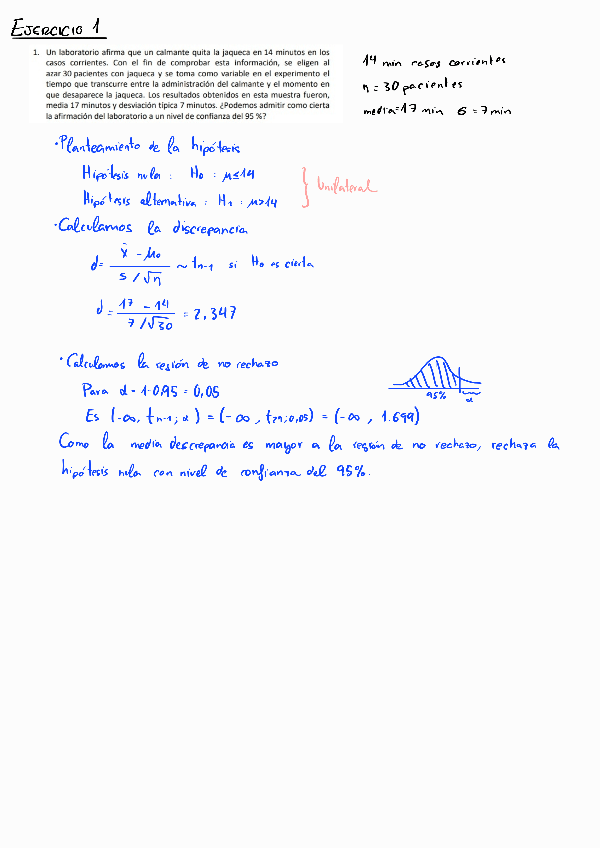 EJERCICIO 1
1. Un laboratorio afirma que un calmante quita la jaqueca en 14 minutos en los
casos corrientes. Con el fin de comprobar esta información, se eligen al
azar 30 pacientes con jaqueca y se toma como variable en el experimento el
tiempo que transcurre entre la administración del calmante y el momento en
que desaparece la jaqueca. Los resultados obtenidos en esta muestra fueron,
media 17 minutos y desviación típica 7 minutos. ¿Podemos admitir como cierta
la afirmación del laboratorio a un nivel de confianza del 95 %?
14 min casos corrientes
n = 30 pacientes
media=17 min 6 = 7 min
· Planteamiento de la hipótesis
Hipótesis nula : H0 : μ≤14
Hipótesis alternativa : H1 : μ>14
Unilateral
· Calculamos la discrepancia
d= x̄ - μ0 / S / √n ~ tn-1 si H0 es cierta
d = 17 - 14 / 7 / √30 = 2,347
· Calculamos la región de no rechazo
Para α = 1-0,95 = 0,05
95% α
Es (-∞, tn-1; α) = (-∞, t29;0,05) = (-∞, 1.699)
Como la media descrepancia es mayor a la región de no rechazo, rechaza la
hipótesis nula con nivel de confianza del 95%.